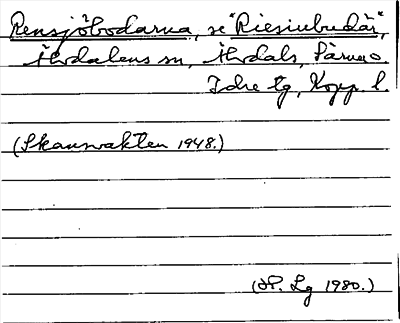 Rensjöbodarna, se "Riesiubudär",
Älvdalens sn, Älvdals, Särna o.
Idre tg, Kopp. l.
(Skansvakten 1948.)
(H. Lg 1980.)